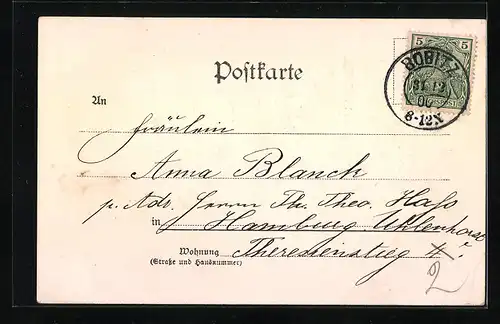 5 5
Postkarte
BOBITZ
31 12
00
8-12V.
An
Fräulein
Anna Blanck
p. Adr. Herrn Th. Theo. Hass
in Hamburg Uhlenhorst
Wohnung Theresienstieg
(Straße und Hausnummer)
2